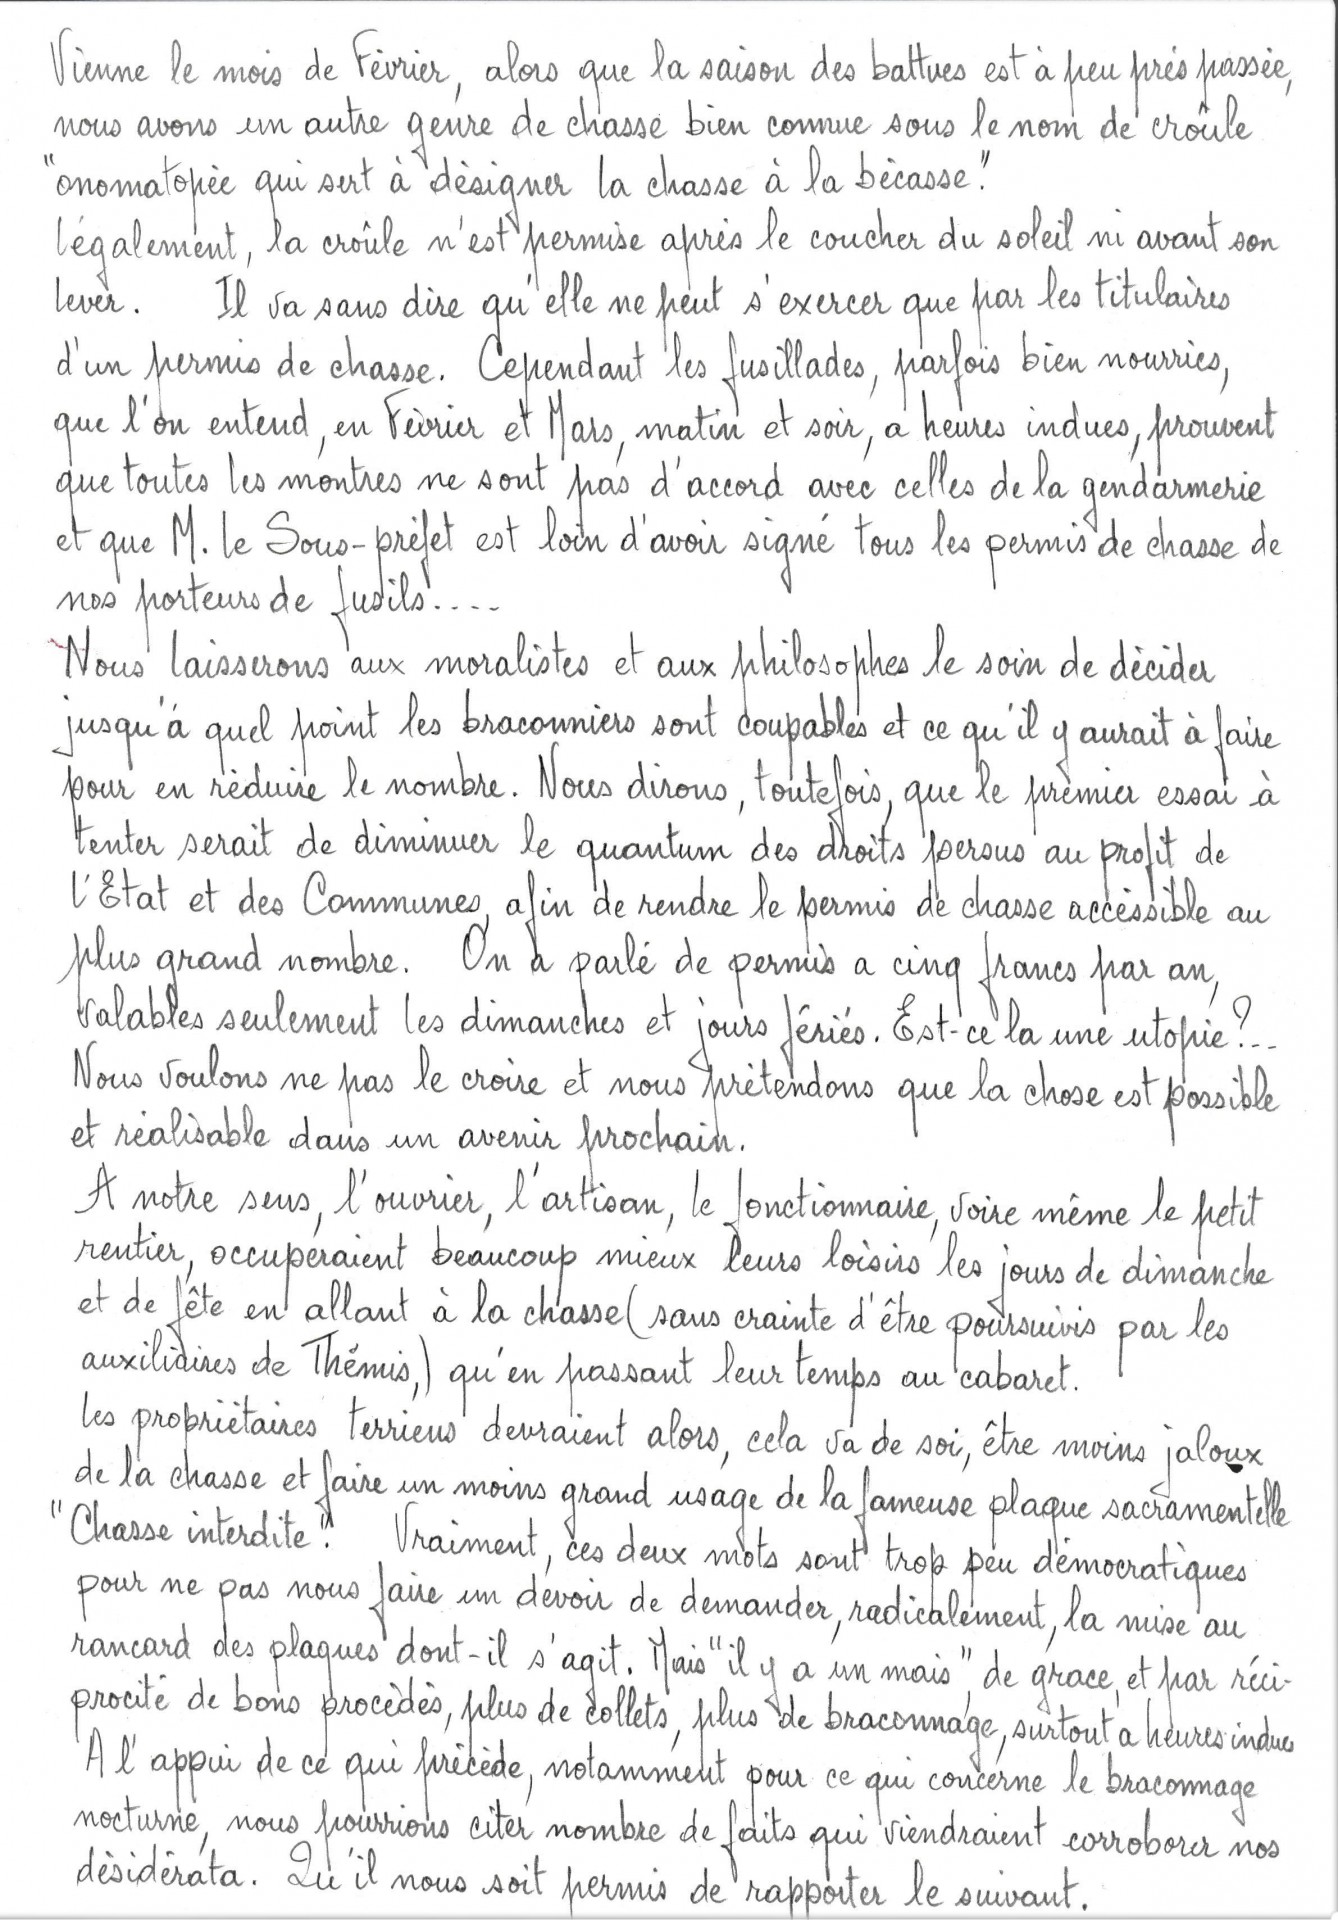 Vienne le mois de Février, alors que la saison des battues est à peu prés passée,
nous avons un autre genre de chasse bien connue sous le nom de croûle
"onomatopèe qui sert à désigner la chasse à la bécasse".
Légalement, la croûle n'est permise aprés le coucher du soleil ni avant son
lever. Il va sans dire qu'elle ne peut s'exercer que par les titulaires
d'un permis de chasse. Cependant les fusillades, parfois bien nourries,
que l'on entend, en Février et Mars, matin et soir, a heures indues, prouvent
que toutes les montres ne sont pas d'accord avec celles de la gendarmerie
et que M. le Sous-préfet est loin d'avoir signé tous les permis de chasse de
nos porteurs de fusils....
Nous laisserons aux moralistes et aux philosophes le soin de décider
jusqu'à quel point les braconniers sont coupables et ce qu'il y aurait à faire
pour en réduire le nombre. Nous dirons, toutefois, que le premier essai à
tenter serait de diminuer le quantum des droits persus au profit de
l'Etat et des Communes, afin de rendre le permis de chasse accéssible au
plus grand nombre. On a parlé de permis a cinq francs par an,
valables seulement les dimanches et jours fériés. Est-ce la une utopie?...
Nous voulons ne pas le croire et nous prétendons que la chose est possible
et réalisable dans un avenir prochain.
A notre sens, l'ouvrier, l'artisan, le fonctionnaire, voire même le petit
rentier, occuperaient beaucoup mieux leurs loisirs les jours de dimanche
et de fête en allant à la chasse (sans crainte d'être poursuivis par les
auxiliaires de Thémis,) qu'en passant leur temps au cabaret.
Les propriétaires terriens devraient alors, cela va de soi, être moins jaloux
de la chasse et faire un moins grand usage de la fameuse plaque sacramentelle
"Chasse interdite". Vraiment, ces deux mots sont trop peu démocratiques
pour ne pas nous faire un devoir de demander, radicalement, la mise au
rancard des plaques dont-il s'agit. Mais "il y a un mais", de grace, et par réci-
procité de bons procédés, plus de collets, plus de braconnage, surtout a heures indues
A l'appui de ce qui précède, notamment pour ce qui concerne le braconnage
nocturne, nous pourrions citer nombre de faits qui viendraient corroborer nos
désidérata. Qu'il nous soit permis de rapporter le suivant.